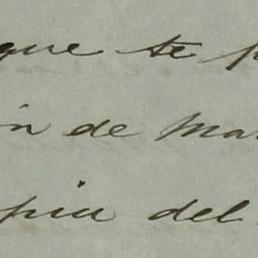 que te p
ón de ma
pia del